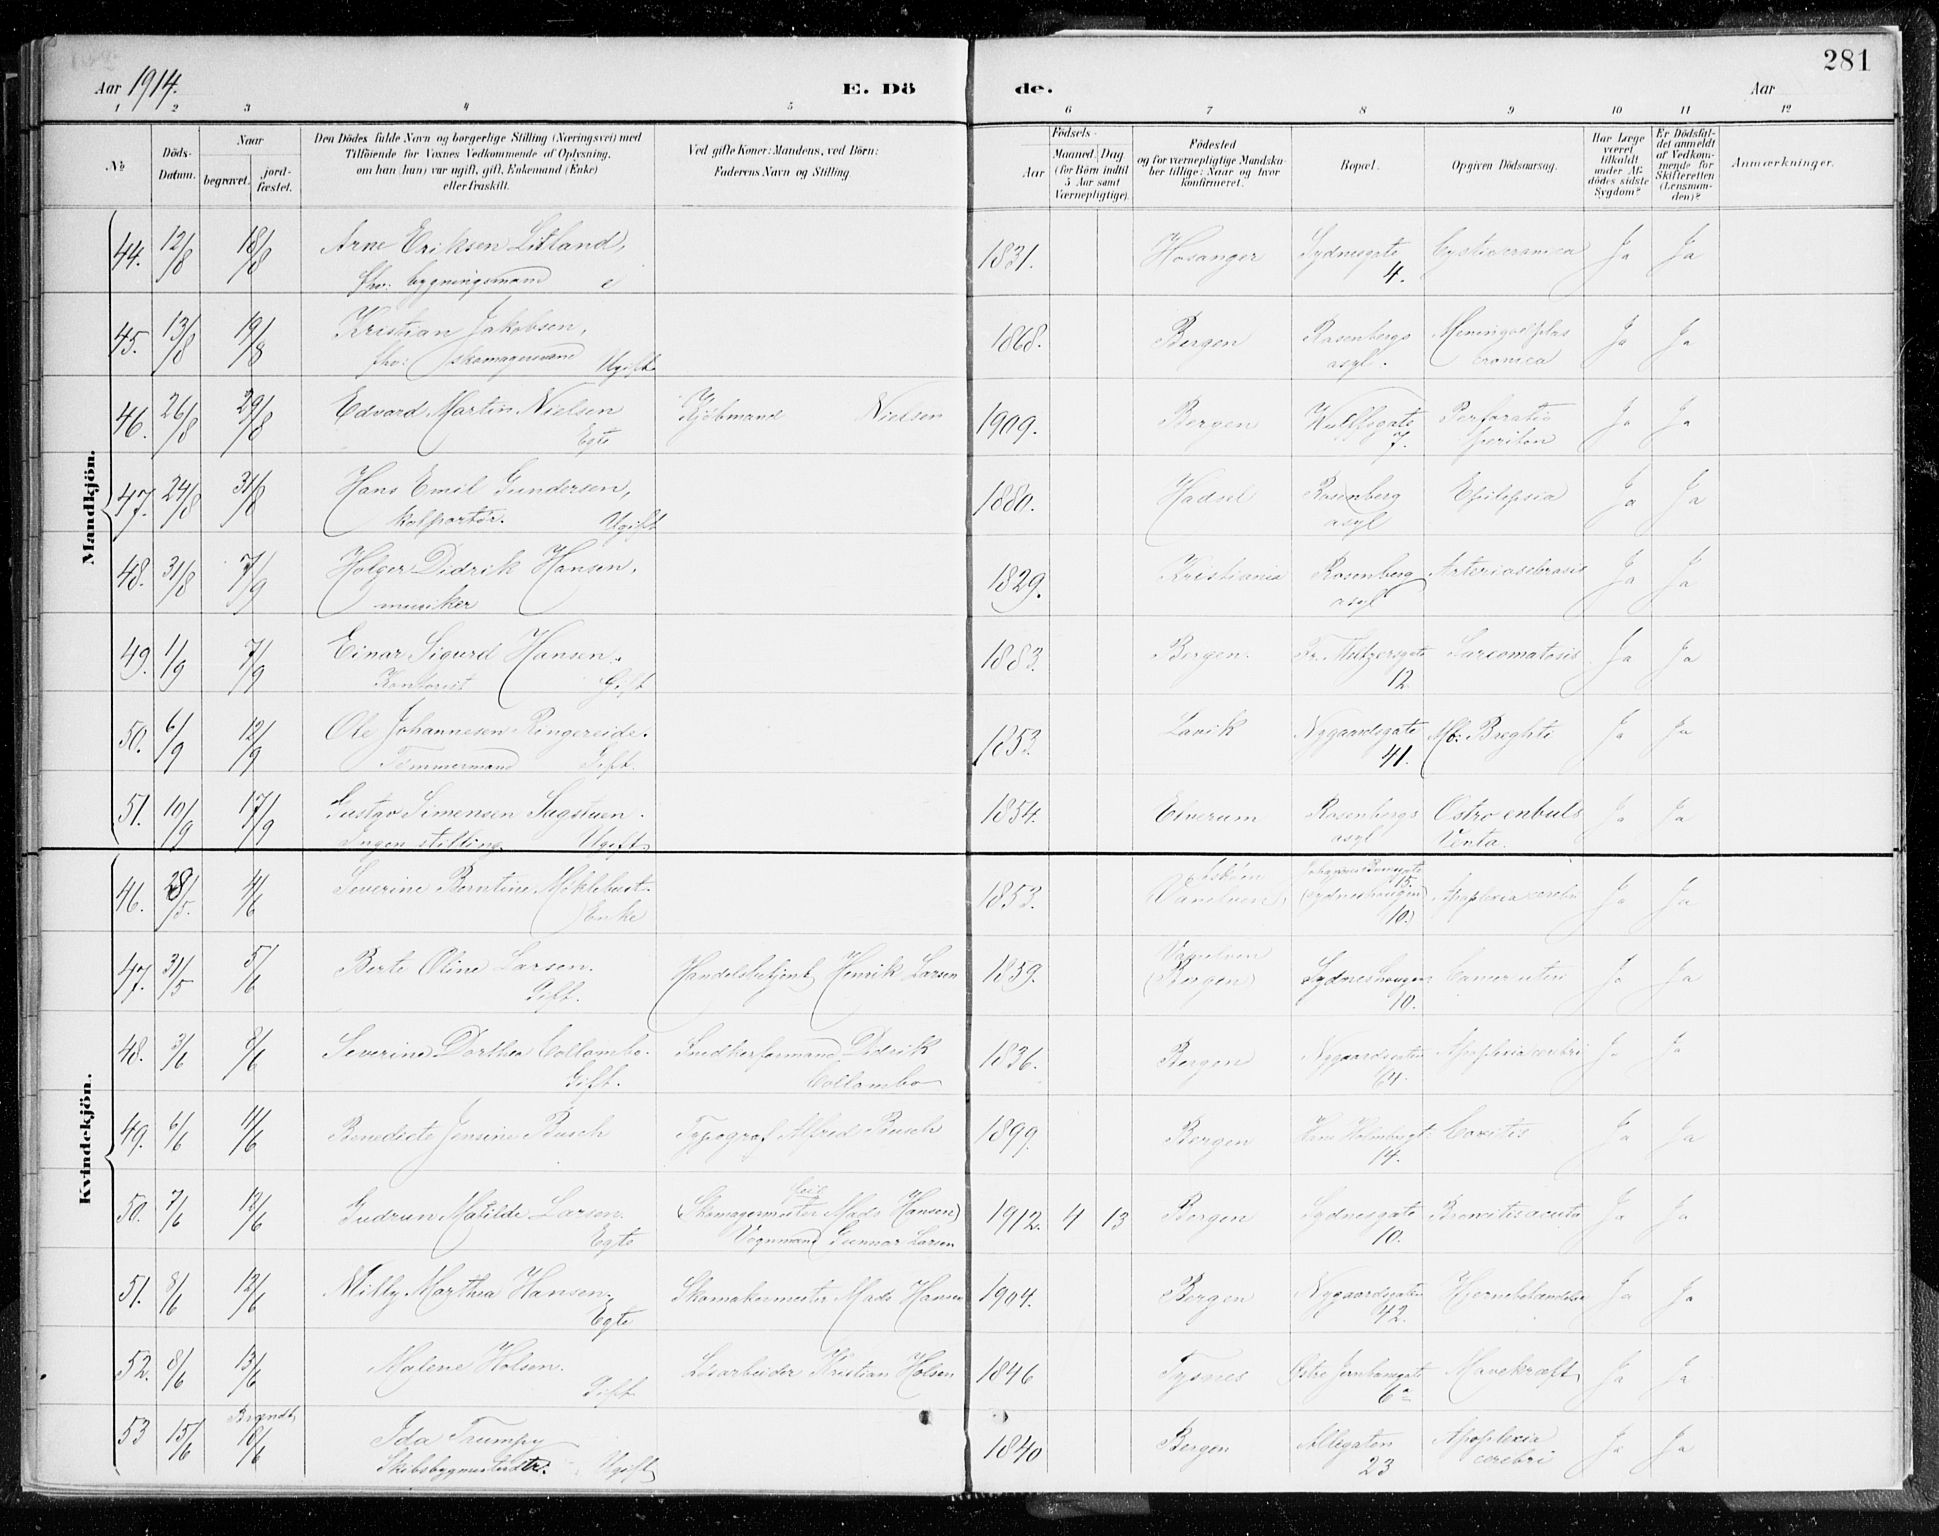 281
Aar 1914.
E. Dö
de.
Aar
1 2 3 4 5 6 7 8 9 10 11 12
№
Döds-Datum.
Naar
begravet.
jord-fæstet.
Den Dödes fulde Navn og borgerlige Stilling (Næringsvei) med
Tilföiende for Voxnes Vedkommende af Oplysning,
om han (hun) var ugift, gift, Enkemand (Enke)
eller fraskilt.
Ved gifte Koner: Mandens, ved Börn:
Faderens Navn og Stilling.
Födsels-
Aar
Maaned.
Dag
(for Börn indtil
5 Aar samt
Værnepligtige)
Födested
og for værnepligtige Mandska-
ber tillige: Naar og hvor
konfirmeret.
Bopæl.
Opgiven Dödsaarsag.
Har Læge
været
tilkaldt
under Af-
dödes sidste
Sygdom?
Er Dödsfal-
det anmeldt
af Vedkom-
mende for
Skifteretten
(Lensman-
den)?
Anmærkninger.
Mandkjön.
44. 12/8 18/8 Arne Eriksen Litland, 1831. Hosanger Sydnesgate Ja Ja
fhv: bygningsmand e 4.
45. 13/8 19/8 Kristian Jakobsen, 1868. Bergen Rosenbergs Ja Ja
fhv: Ugift asyl. cronica
46. 26/8 29/8 Edvard Martin Nielsen Kjöbmand Nielsen 1909. Bergen Wulffsgate Perforatio Ja Ja
Egte 7. periton
47. 24/8 31/8 Hans Emil Gundersen, 1880. Hadsel Rosenberg Epilepsia Ja Ja
kolportör. Ugift asyl
48. 31/8 7/9 Holger Didrik Hansen, 1829. Kristiania Rosenberg Ja Ja
musiker asyl
49. 1/9 7/9 Einar Sigurd Hansen. 1883. Bergen. Fr. Meltzersgate Sarcomatosis Ja Ja
Kontorist Gift 12
50. 6/9 12/9 Ole Johannesen Ringereide. 1853. Lavik Nygaardsgate Mb: Breghti Ja Ja
Tömmermand Gift. 41.
51. 10/9 17/9 Gustav Simensen Sagstuen. 1854. Elverum Rosenbergs Ja Ja
Ingen stilling Ugift asyl Venta.
Kvindekjön.
46. 28/5. 4/6 Severine Berntine Möklebust. 1853. Vanelven (Sydneshaugen Apoplexia cerebri Ja Ja
Enke 15. 10)
47. 31/5 5/6 Berte Oline Larsen. Handelsbetjent Henrik Larsen 1859. Vanelven (Bergen) Sydneshaugen Cancer uteri Ja Ja
Gift. 10.
48. 3/6 8/6 Severine Dorthea Collambo. Snedkerformand Didrik 1836. Bergen Nygaardsgaten Apoplexia cerebri Ja Ja
Gift. Collambo 64.
49. 6/6 11/6 Benedicte Jensine Busch Typograf Alfred Busch 1899. Bergen Hans Holmboegt: Coxitis Ja Ja
14.
50. 7/6 13/6 Gudrun Matilde Larsen. feil (Skomagermester Mads Hansen) 1912. 4 13 Bergen Sydnesgate Broncitis acuta Ja Ja
Egte Vognmand Gunnar Larsen 10.
51. 8/6 12/6 Milly Marthea Hansen. Skomakermester Mads Hansen 1904. Bergen Nygaardsgaten Ja Ja
Egte 42.
52. 8/6 13/6 Malene Holsen. Lösarbeider Kristian Holsen 1846 Tysnes Östre Jernbanegate Mavekræft Ja Ja
Gift 6a
53 15/6 Brændt 18/6 Ida Trumpy 1840 Bergen Allegaten Apoplexia Ja Ja
Skibsbygmesterdtr. Ugift 23 cerebri